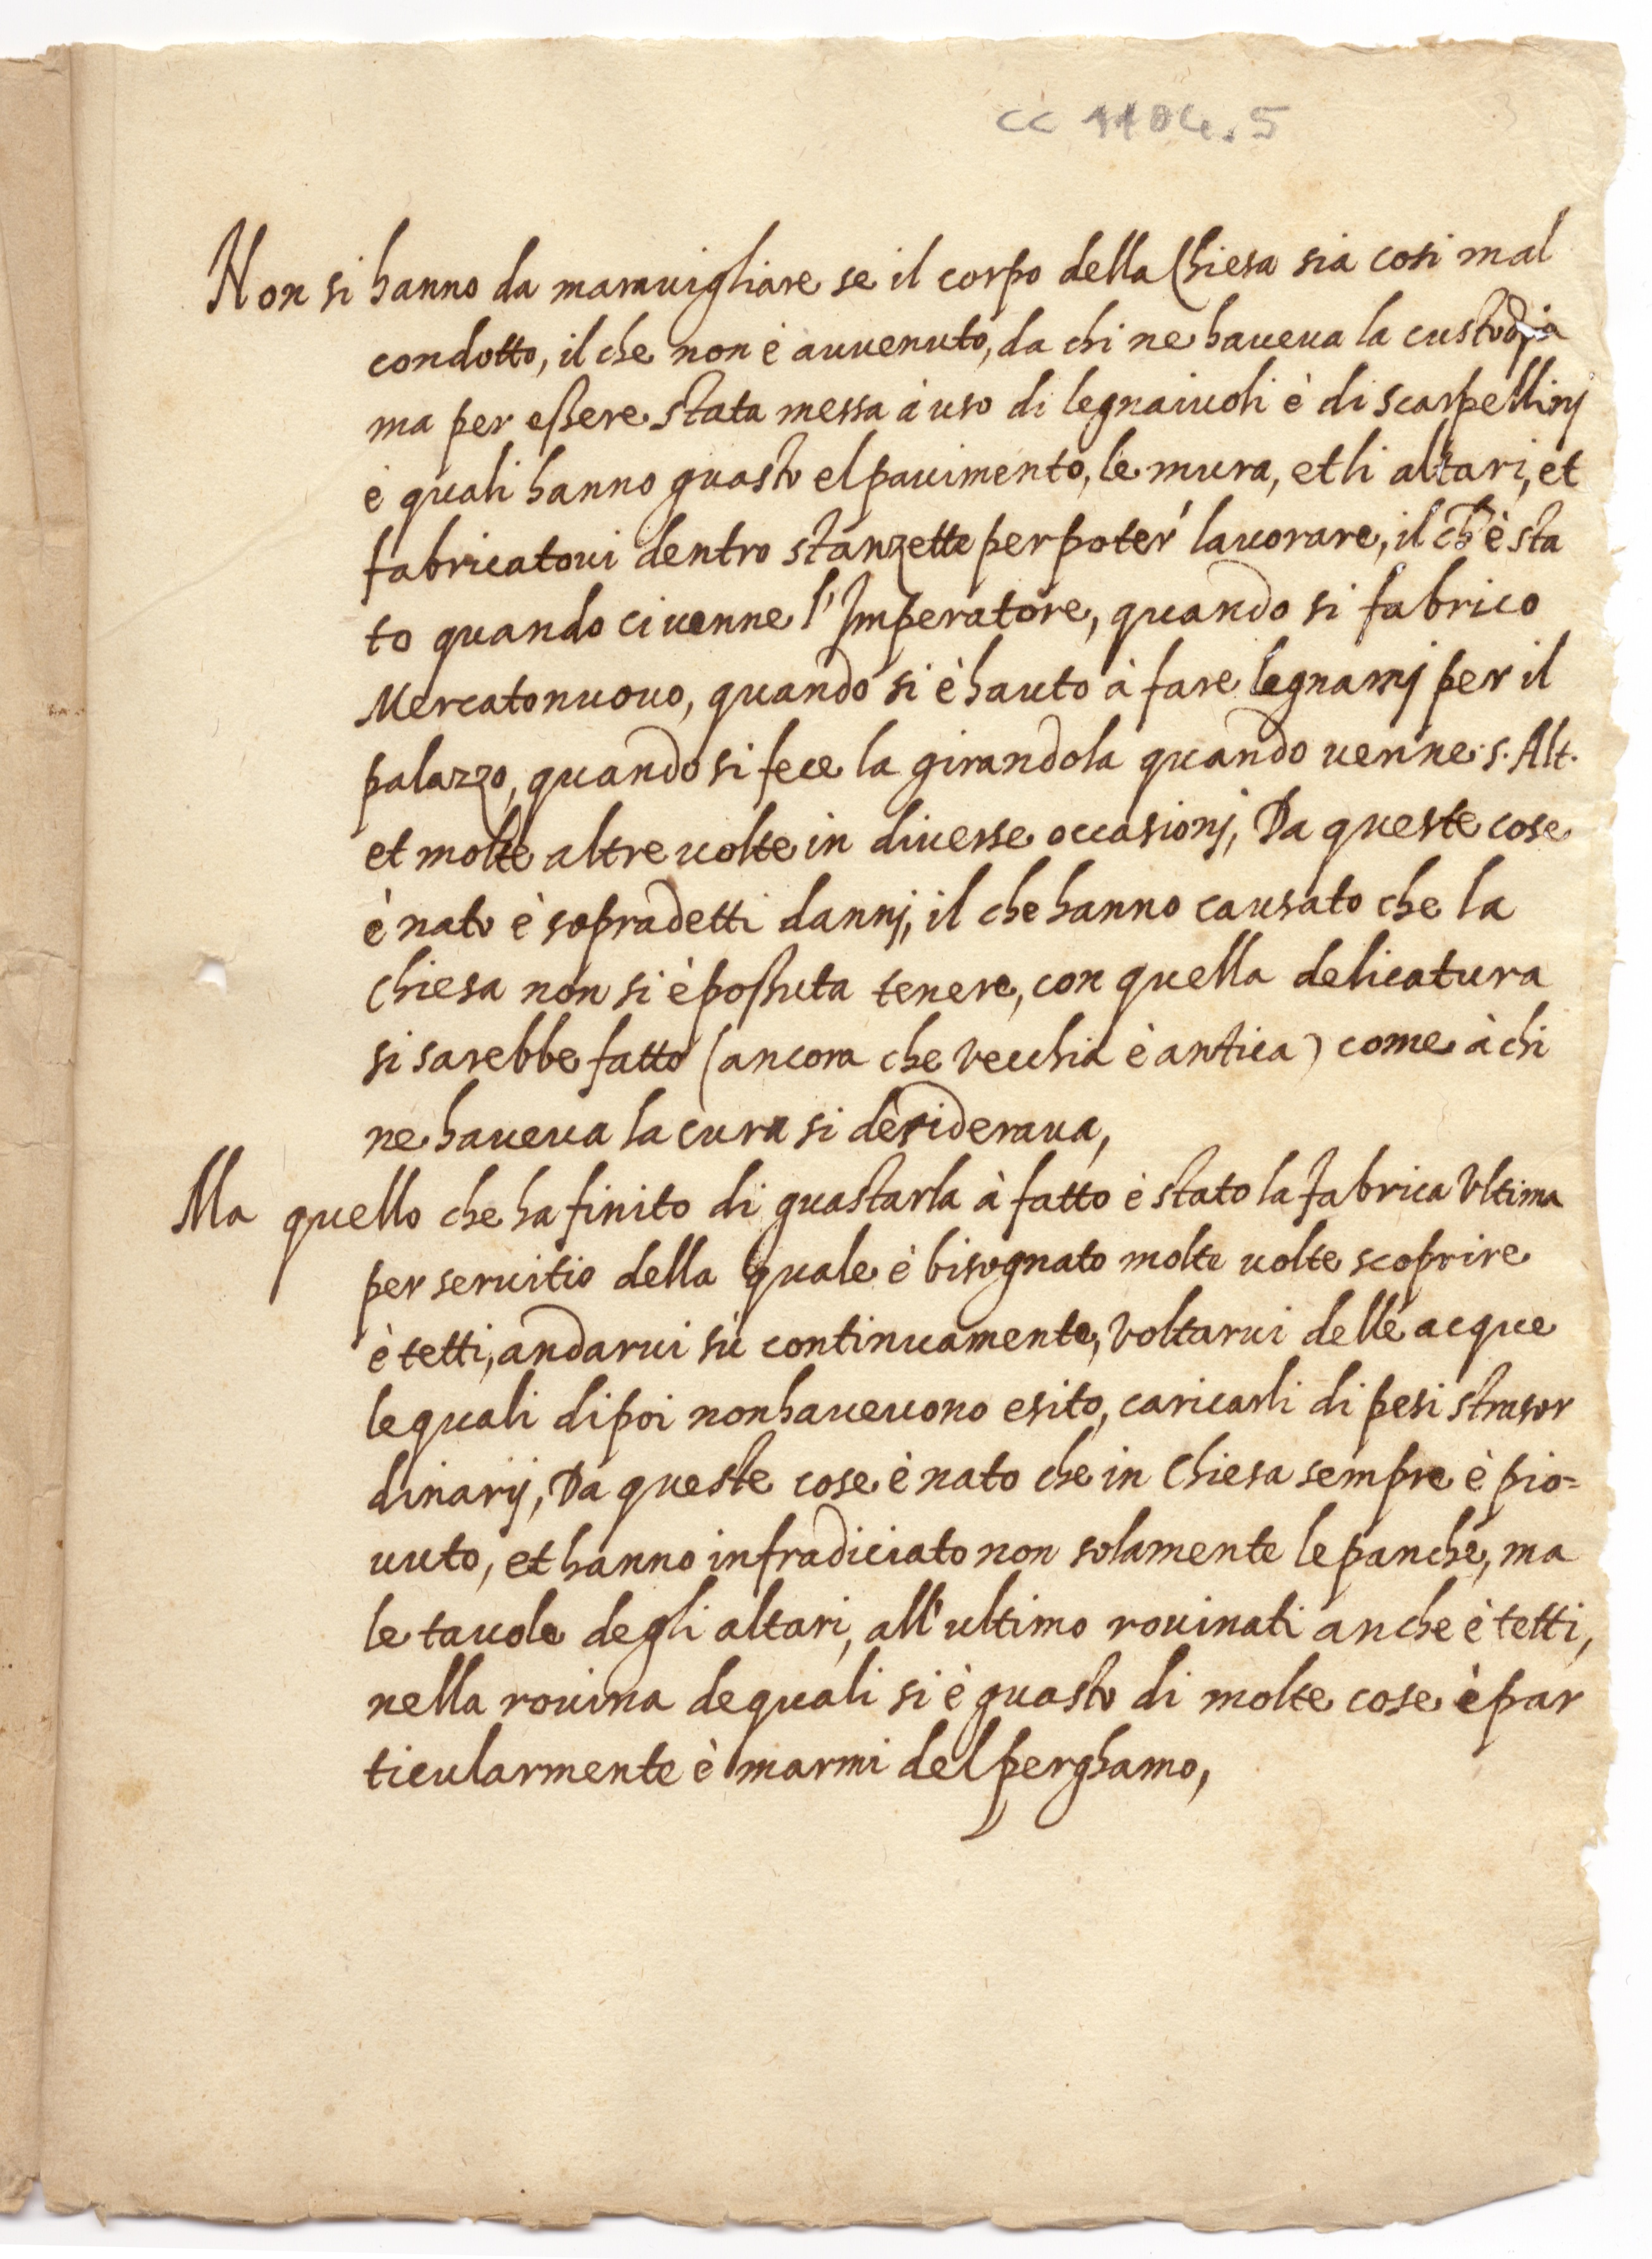 cc 1104.5
Non si hanno da marauigliare se il corpo della Chiesa sia cosi mal
condotto, il che non è auuenuto, da chi ne haueua la custodia
ma per eßere stata messa à uso di legnaiuoli è di scarpellinj
è quali hanno guasto el pauimento, le mura, et li altari, et
fabricatoui dentro stanzette per poter' lauorare, il ch' è sta
to quando ci uenne l'Imperatore, quando si fabrico
Mercatonuouo, quando si è hauto à fare legnamj per il
palazzo, quando si fece la girandola quando uenne S. Alt.
et molte altre uolte in diuerse occasionj, Da queste cose
è nato è sopradetti dannj, il che hanno causato che la
Chiesa non si è poßuta tenere, con quella delicatura
si sarebbe fatto (ancora che vecchia è antica) come à chi
ne haueua la cura si desideraua,
Ma quello che ha finito di guastarla à fatto è stato la fabrica Vltima
per seruitio della quale è bisognato molte uolte scoprire
è tetti, andarui sù continuamente, Voltarui delle acque
le quali dipoi non haueuono esito, caricarli di pesi straor
dinarij, Da queste cose è nato che in Chiesa sempre è pio=
uuto, et hanno infradiciato non solamente le panche, ma
le tauole degli altari, all'ultimo rouinati anche è tetti,
nella rouina de quali si è guasto di molte cose è par
ticularmente è marmi del perghamo,